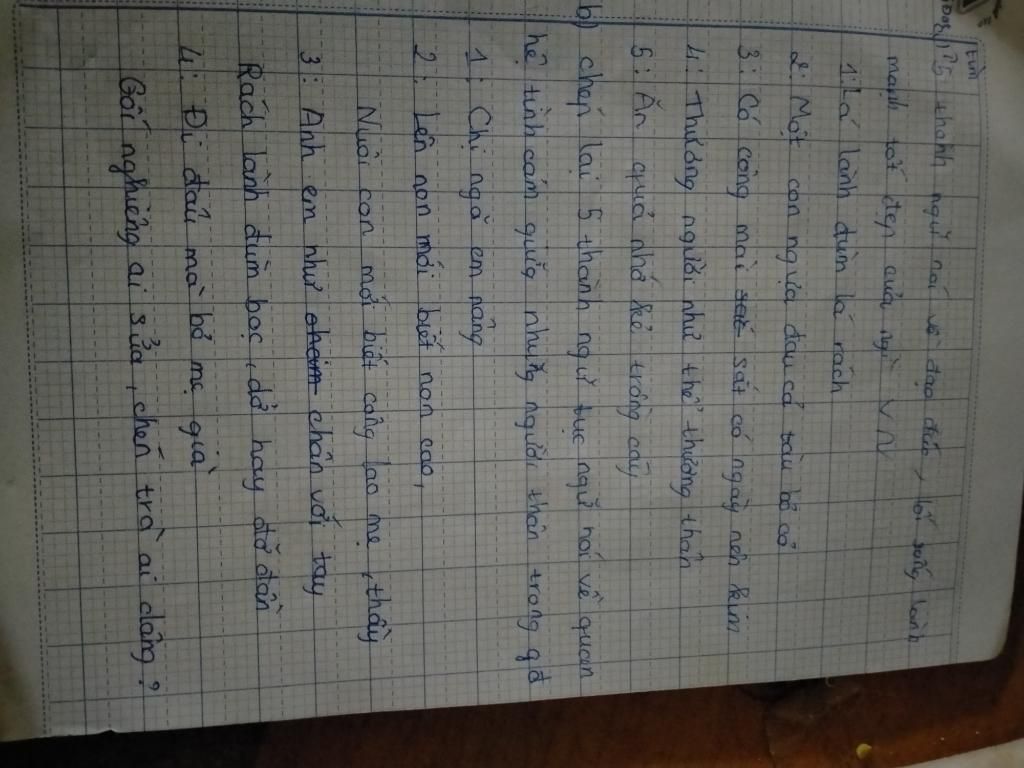 Tìm 5 thành ngữ nói về đạo đức, lối sống lành
mạnh tốt đẹp của ngì VN
1: Lá lành đùm lá rách
2: Một con ngựa đau cả tàu bỏ cỏ
3: Có công mài sắt có ngày nên kim
4: Thương người như thể thương thân
5: Ăn quả nhớ kẻ trồng cây
b) chép lại 5 thành ngữ tục ngữ nói về quan
hệ tình cảm giữa những người thân trong gđ
1: Chị ngã em nâng
2: Lên non mới biết non cao,
Nuôi con mới biết công lao mẹ, thầy
3: Anh em như chân với tay
Rách lành đùm bọc, dở hay đỡ đần
4: Đi đâu mà bỏ mẹ già
Gối nghiêng ai sửa, chén trà ai dâng?